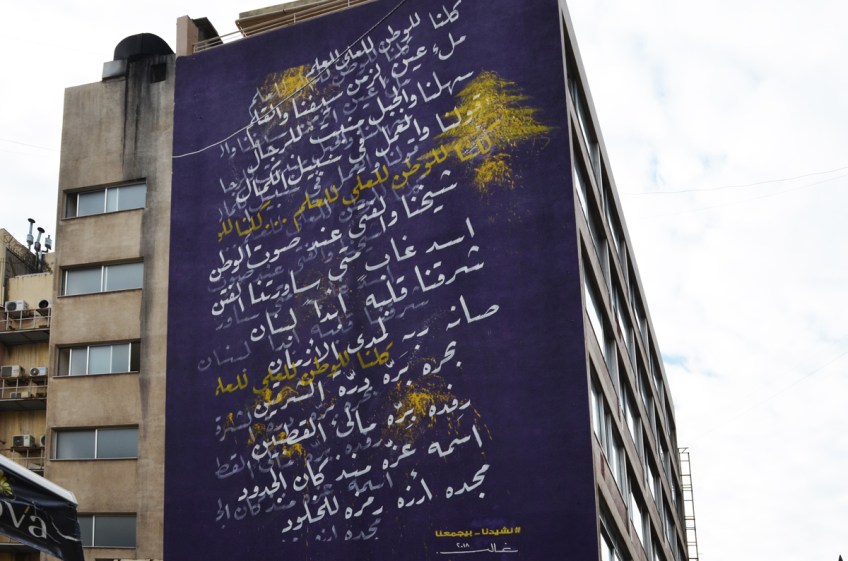 كلنا للوطن للعلى للعلم
ملء عين الزمن سيفنا والقلم
سهلنا والجبل منبت للرجال
قولنا والعمل في سبيل الكمال
كلنا للوطن للعلى للعلم ... كلنا للو
شيخنا والفتى عند صوت الوطن
اسد غاب متى ساورتنا الفتن
شرقنا قلبه ابدا لبنان
صانه ربه لمدى الازمان
كلنا للوطن للعلى للعلم
بحره بره درة الشرقين
رفده بره مالئ القطبين
اسمه عزه منذ كان الجدود
مجده ارزه رمزه للخلود
#نشيدنا_بيجمعنا
٢٠١٨
ova